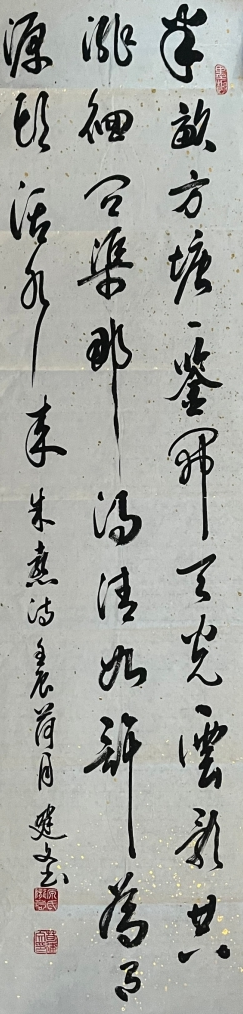 半畝方塘一鑒開天光雲影共
徘徊問渠那得清如許為有
源頭活水來朱熹詩壬辰荷月建文書